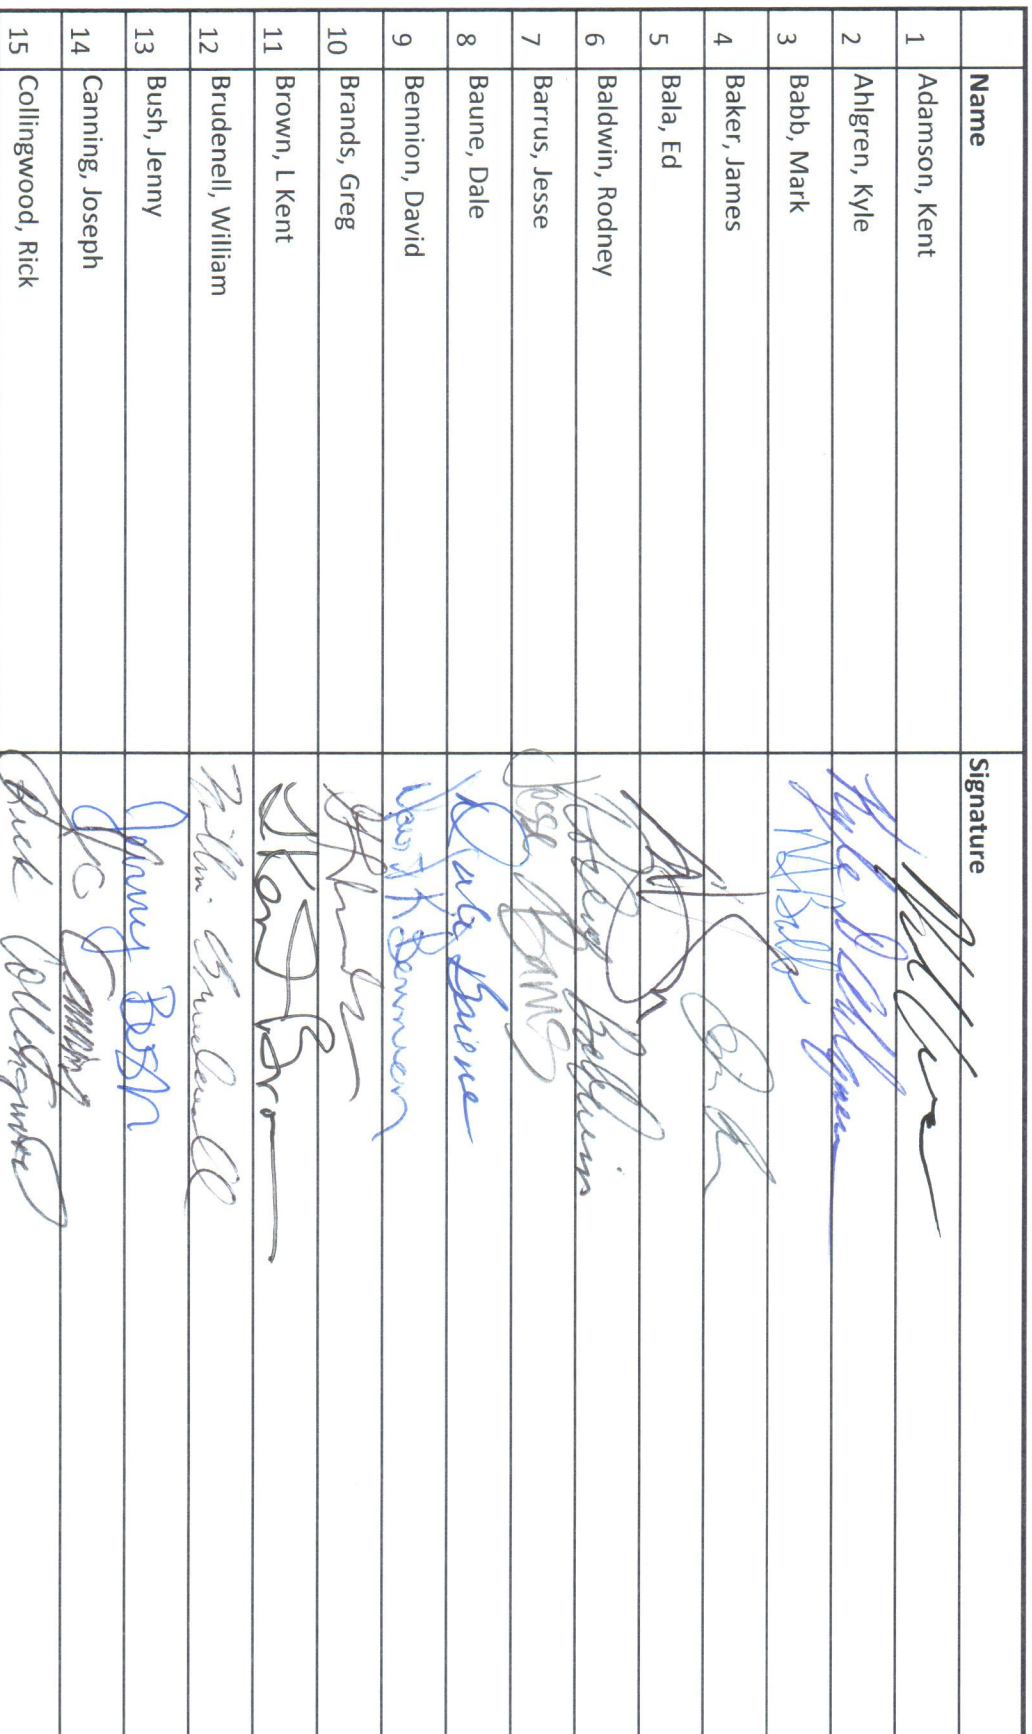 Name Signature
1 Adamson, Kent
2 Ahlgren, Kyle Kyle D Ahlgren
3 Babb, Mark M Babb
4 Baker, James
5 Bala, Ed
6 Baldwin, Rodney Rodney Baldwin
7 Barrus, Jesse Jesse Barrus
8 Baune, Dale Dale Baune
9 Bennion, David David K Bennion
10 Brands, Greg
11 Brown, L Kent L Kent Brown
12 Brudenell, William William Brudenell
13 Bush, Jenny Jenny Bush
14 Canning, Joseph Canning
15 Collingwood, Rick Rick Collingwood